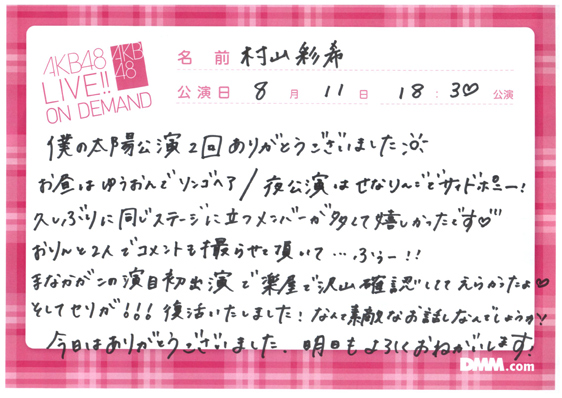 AKB48
LIVE!!
ON DEMAND
AKB
48
名前 村山彩希
公演日 8月11日 18:30♡公演
僕の太陽公演2回ありがとうございました
お昼はゆうおんでリンゴヘア/夜公演はせなりんごでサイドポニー!
久しぶりに同じステージに立つメンバーが多くて嬉しかったです♡
おりんと2人でコメントも撮らせて頂いて…ふぅー!!
まなかがこの演目初出演で楽屋で沢山確認しててえらかったよ♡
そしてセリが!!!復活いたしました!なんて素敵なお話しなんでしょうか!
今日はありがとうございました。明日もよろしくおねがいします!
DMM.com